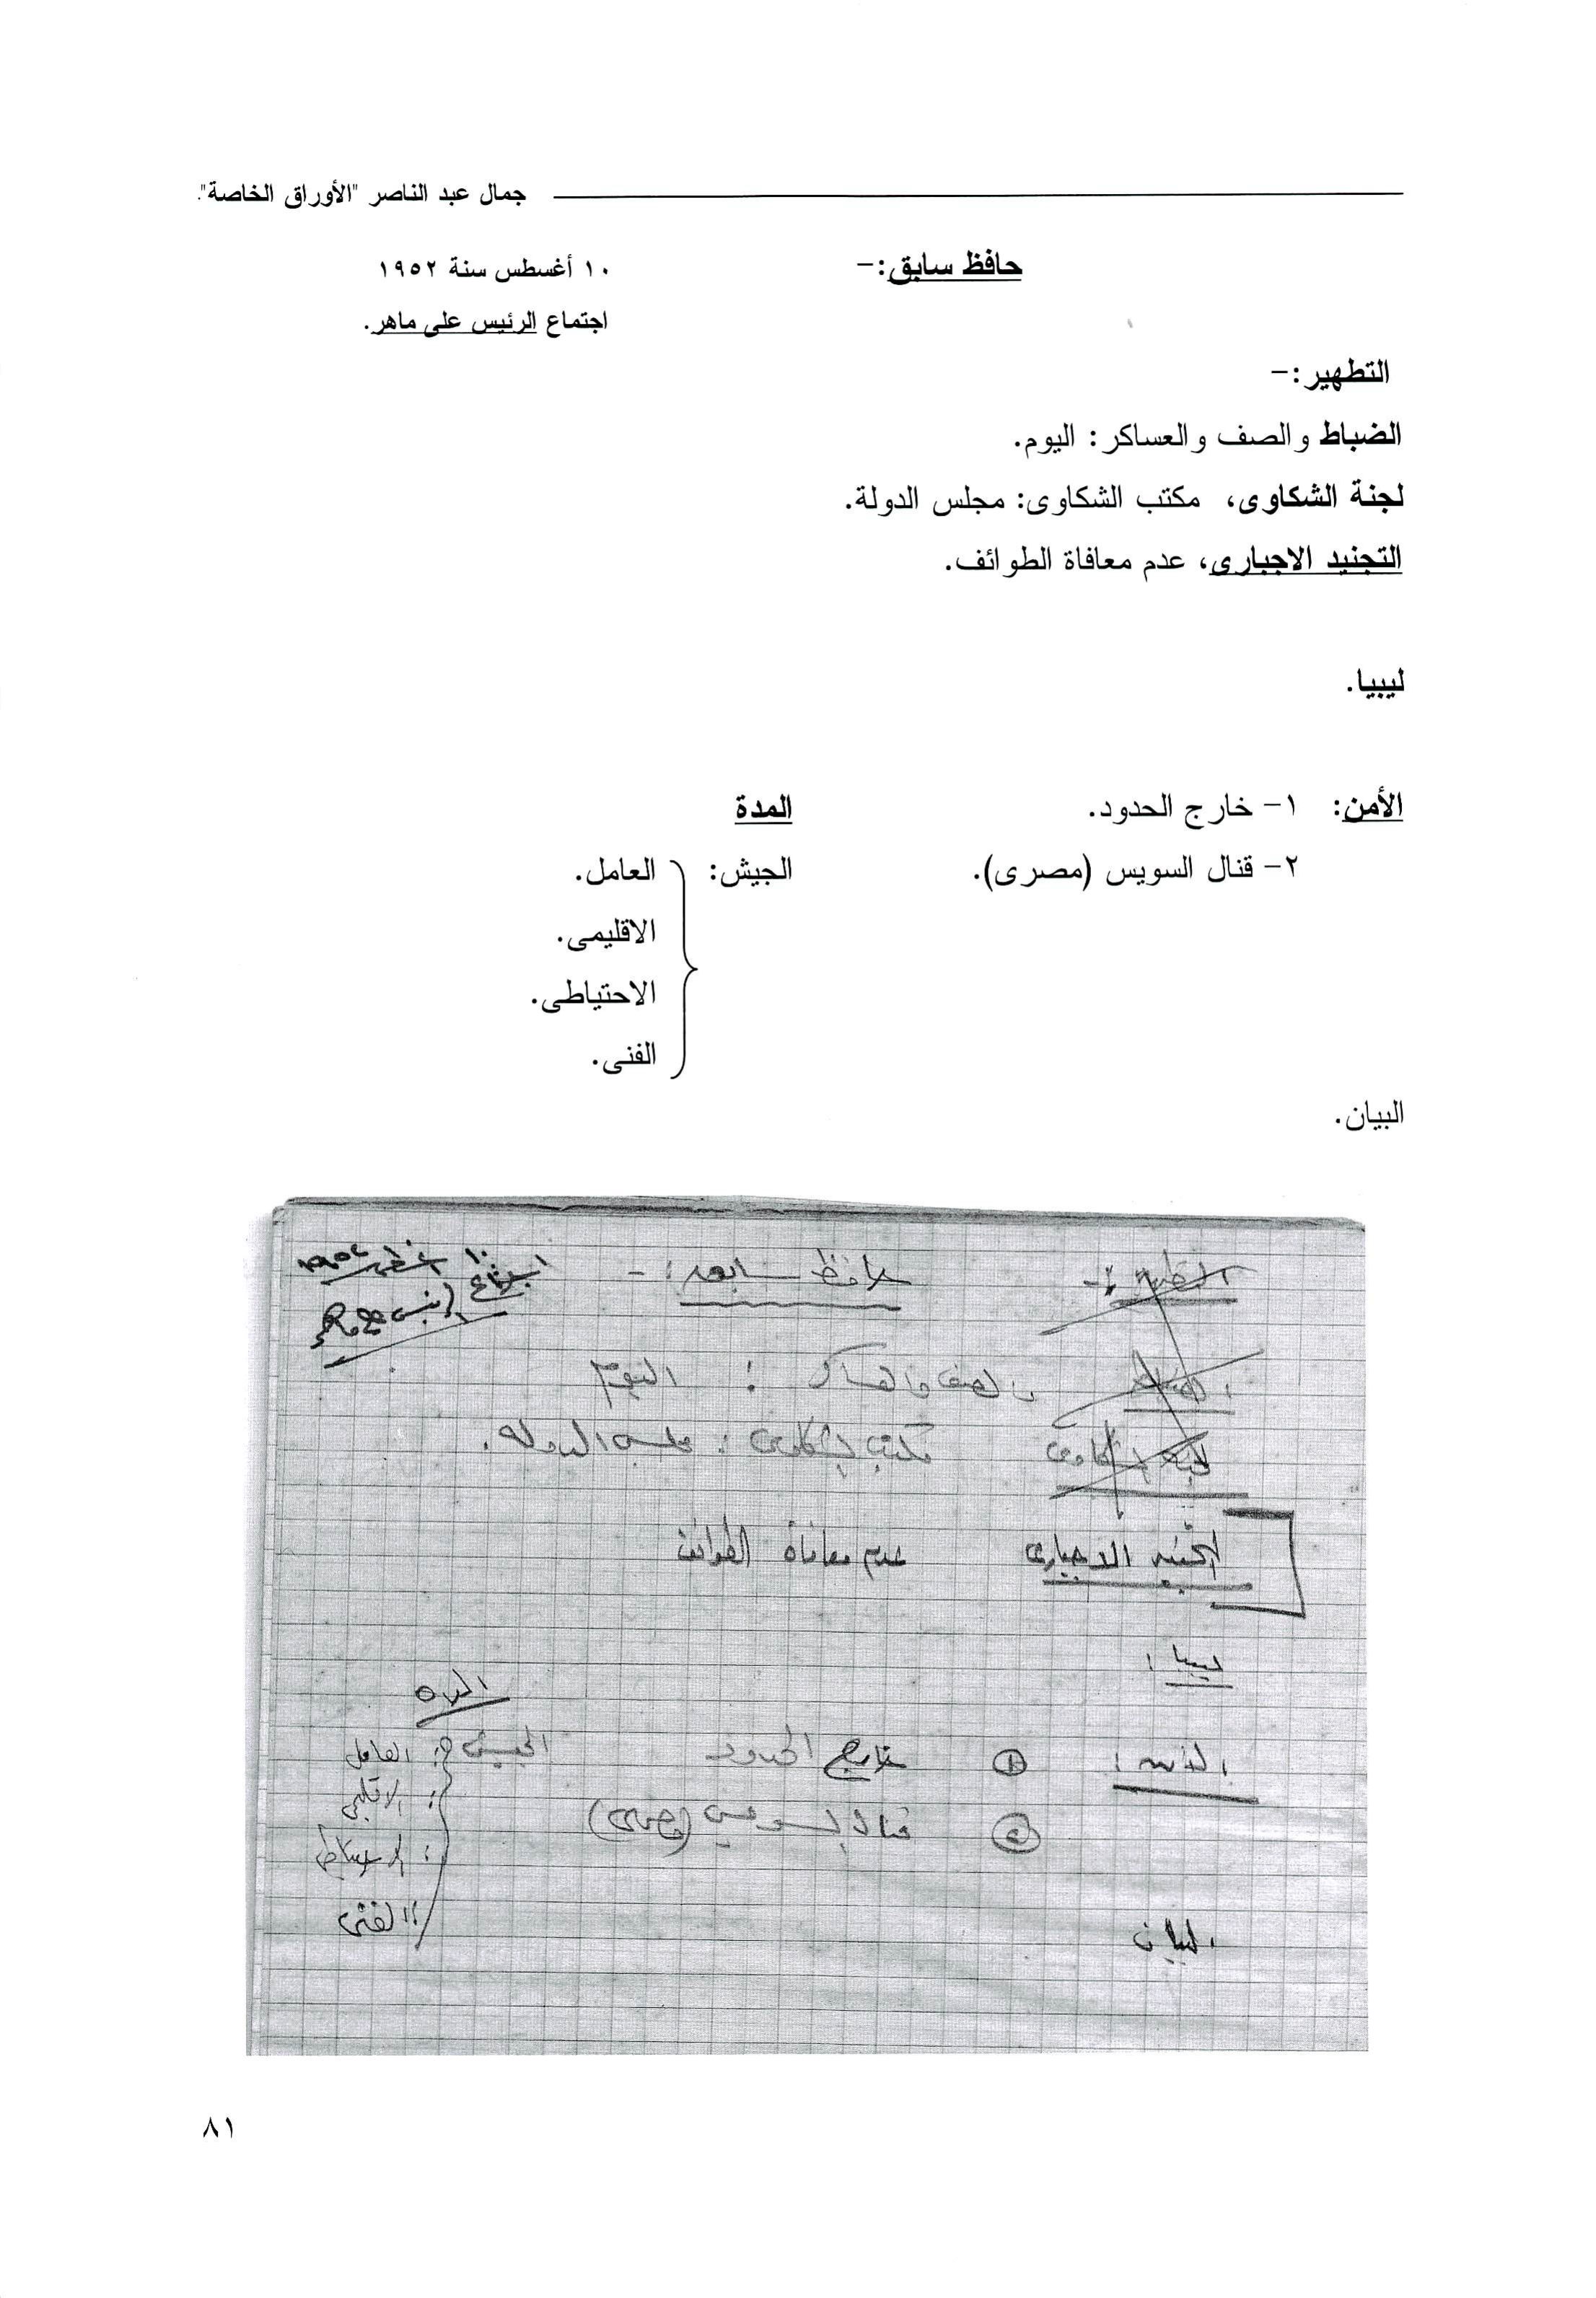 جمال عبد الناصر "الأوراق الخاصة".
حافظ سابق:- ١٠ أغسطس سنة ١٩٥٢
اجتماع الرئيس على ماهر.
التطهير:-
الضباط والصف والعساكر: اليوم.
لجنة الشكاوى، مكتب الشكاوى: مجلس الدولة.
التجنيد الاجبارى، عدم معافاة الطوائف.
ليبيا.
الأمن: ١- خارج الحدود. المدة
٢- قنال السويس (مصرى). الجيش: العامل.
الاقليمى.
الاحتياطى.
الفنى.
البيان.
التطهير :- حافظ سابق :- ١٠ أغسطس ١٩٥٢
اجتماع الرئيس على ماهر
الضباط والصف والعساكر : اليوم
لجنة الشكاوى مكتب الشكاوى : مجلس الدولة.
التجنيد الاجبارى عدم معافاة الطوائف
ليبيا :
المدة
الأمن : ١ خارج الحدود الجيش : العامل
: الاقليمى
٢ قنال السويس (مصرى)
: الاحتياطى
: الفنى
البيان
٨١